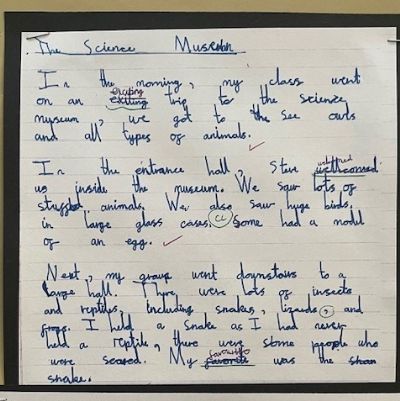 The Science Museum
In the morning, my class went
exciting
on an exciting trip to the science
museum, we got to the see owls
and all types of animals.
In the entrance hall, Steve welcomed
us inside the museum. We saw lots of
stuffed animals. We also saw huge birds.
in large glass cases. CL Some had a model
of an egg.
Next, my group went downstairs to a
large hall. There were lots of insects
and reptiles, including snakes, lizards, and
frogs. I held a snake as I had never
held a reptile, there were some people who
were scared. My favourite was the
snake.